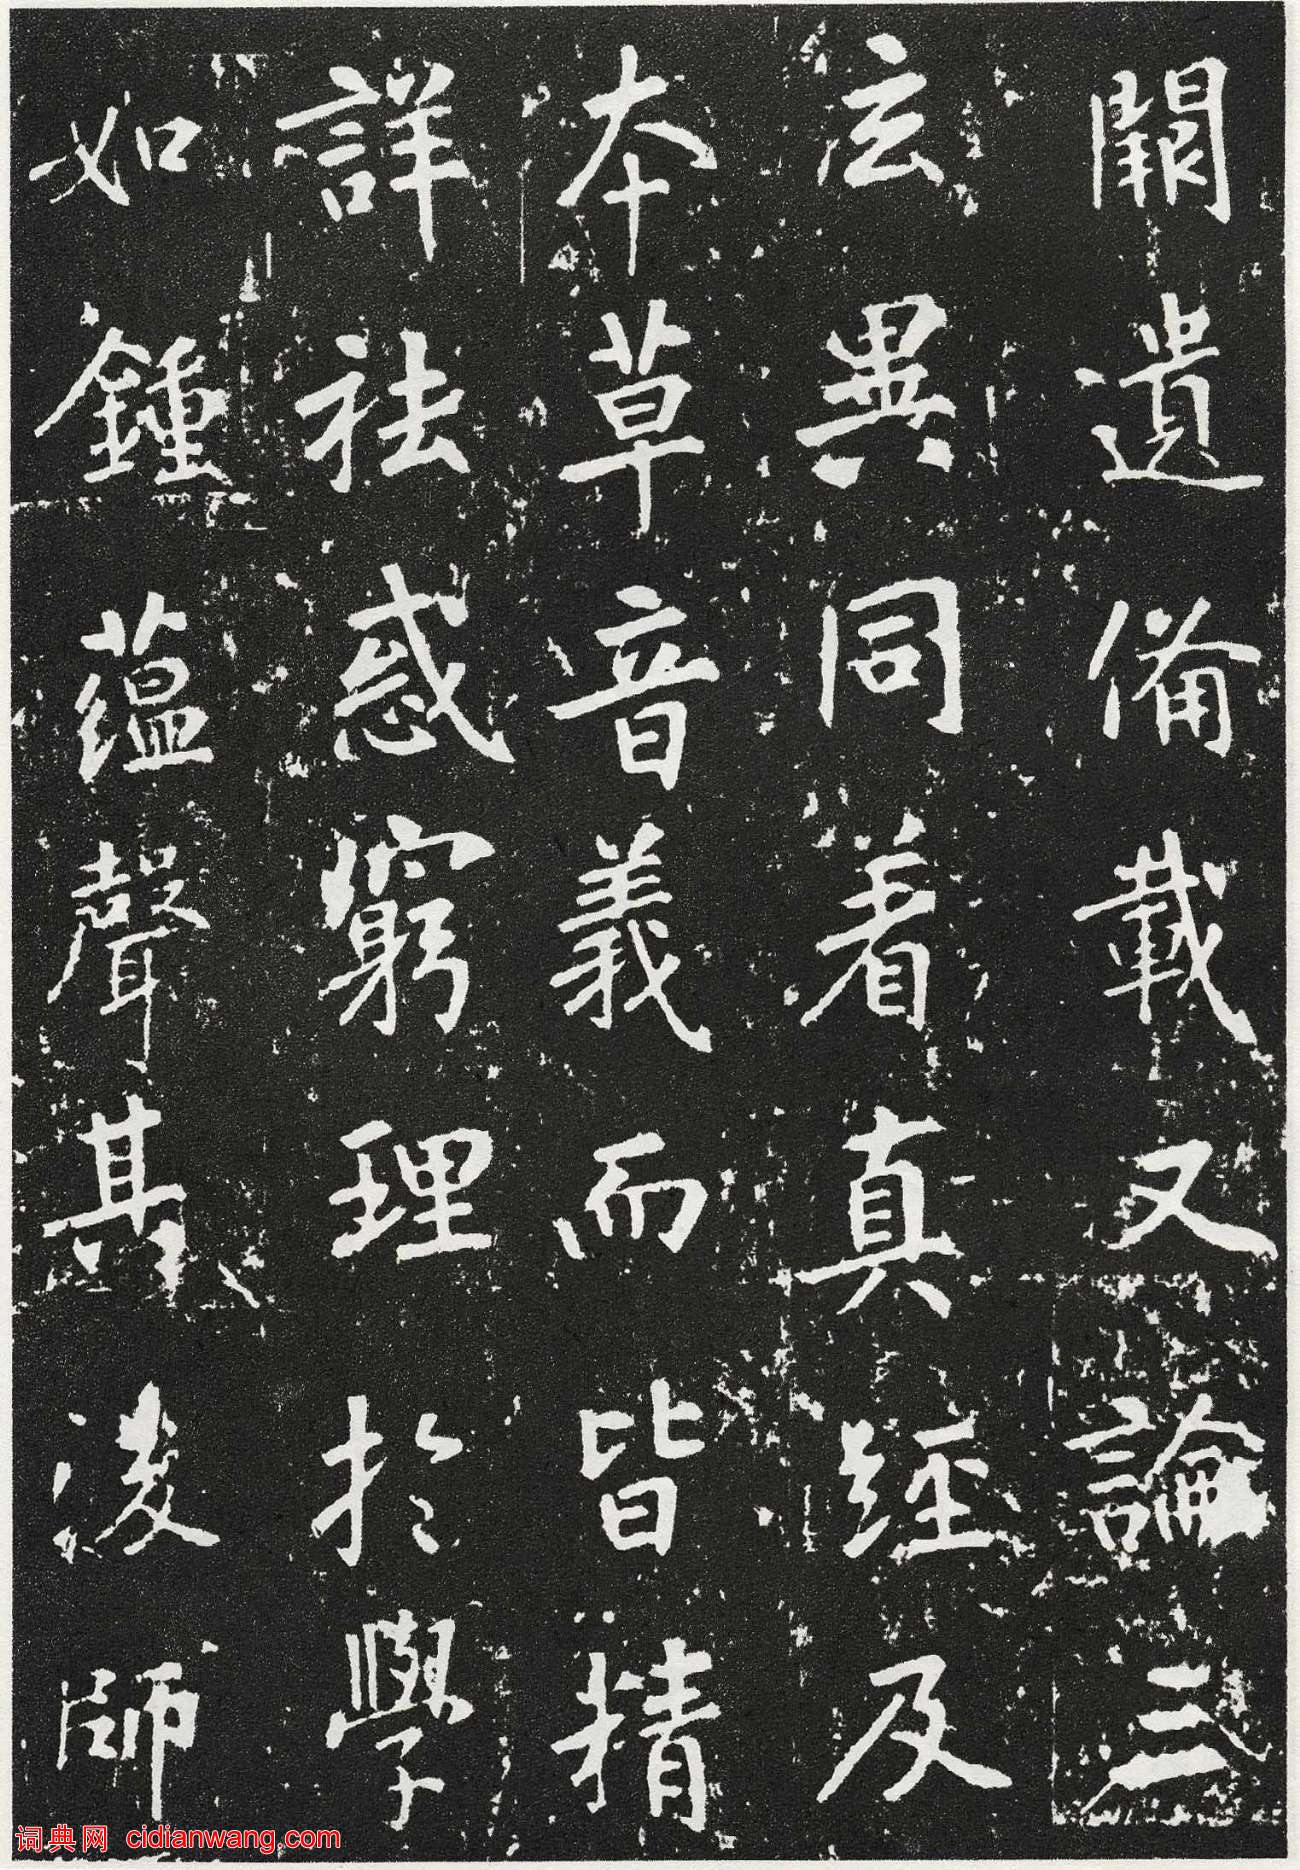 闕遺備載又論三
玄異同著真經及
本草音義而皆精
詳袪惑窮理於學
如鍾蘊聲其後師
词典网 cidianwang.com